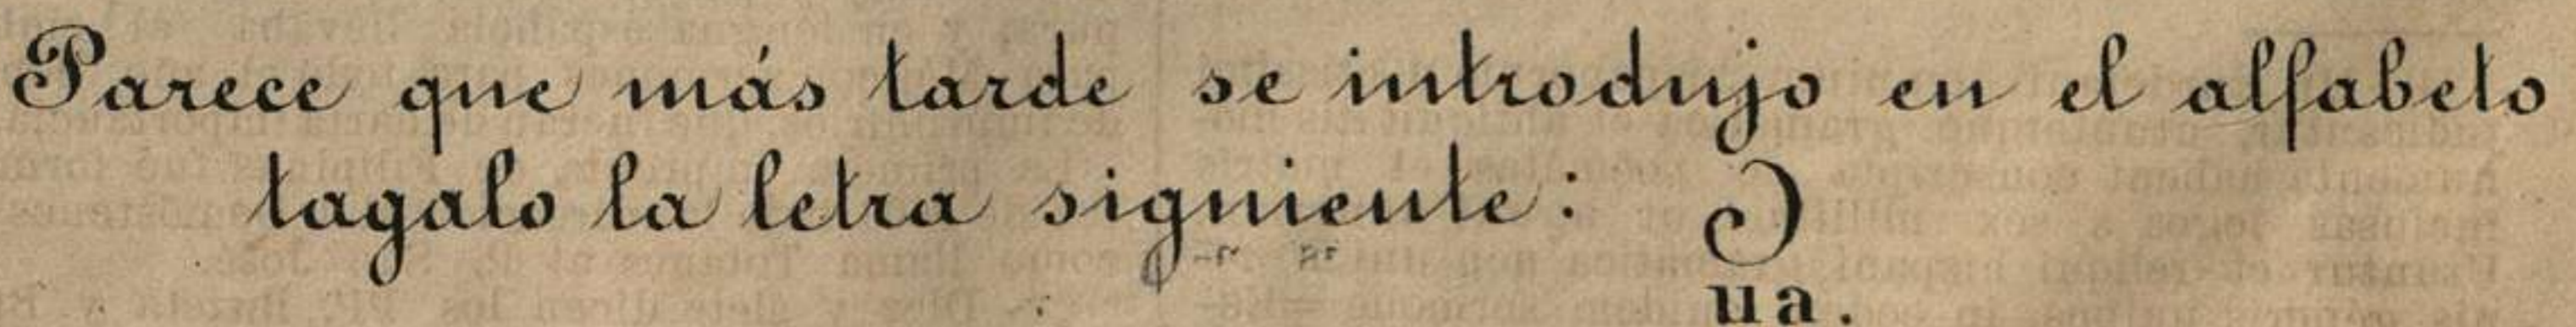 Parece que más tarde se introdujo en el alfabeto
tagalo la letra siguiente: ᜏ
ua.